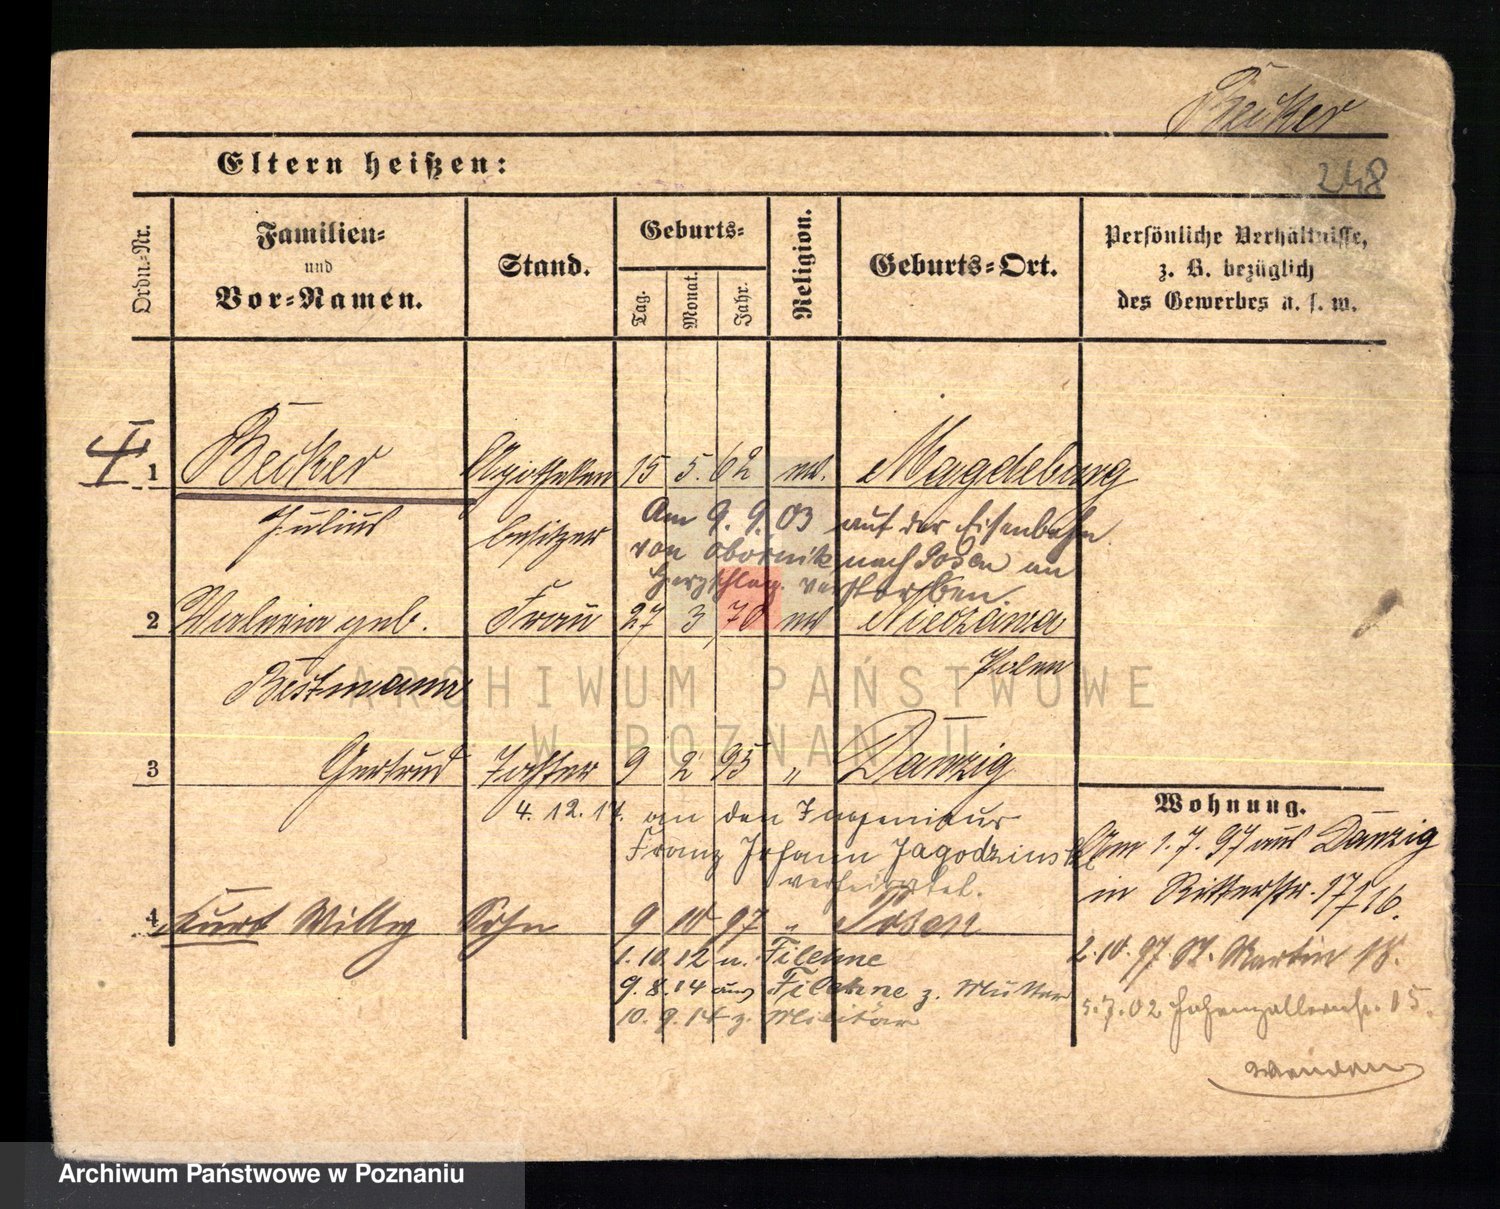 Becker
248
Eltern heißen:
Ordn.-Nr.
Familien-
und
Vor-Namen.
Stand.
Geburts-
Tag.
Monat.
Jahr.
Religion.
Geburts-Ort.
Persönliche Verhältnisse,
z. B. bezüglich
des Gewerbes u. s. w.
I
1 Becker Apotheken 15 5. 62 ev. Magdeburg
Julius besitzer
Am 9. 9. 03 auf der Eisenbahn
von Obornik nach Posen an
Herzschlag verstorben
2 Valeria geb. Frau 27 3 70 ev Nieczawa
Bestmann Polen
3 Gertrud Tochter 9 2 95 " Danzig
4. 12. 17. an den Ingenieur
Franz Johann Jagodzinski
verheiratet.
4 Kurt Willy Sohn 9 10 97 " Posen
1. 10. 12 n. Filehne
9. 8. 14 aus Filehne z. Mutter
10. 9. 14 z. Militär
Wohnung.
Am 1. 7. 97 aus Danzig
in Ritterstr. 17/16.
2. 10. 97 St. Martin 18.
5. 7. 02 Hohenzollernstr. 15.
wenden
ARCHIWUM PAŃSTWOWE
W POZNANIU
Archiwum Państwowe w Poznaniu